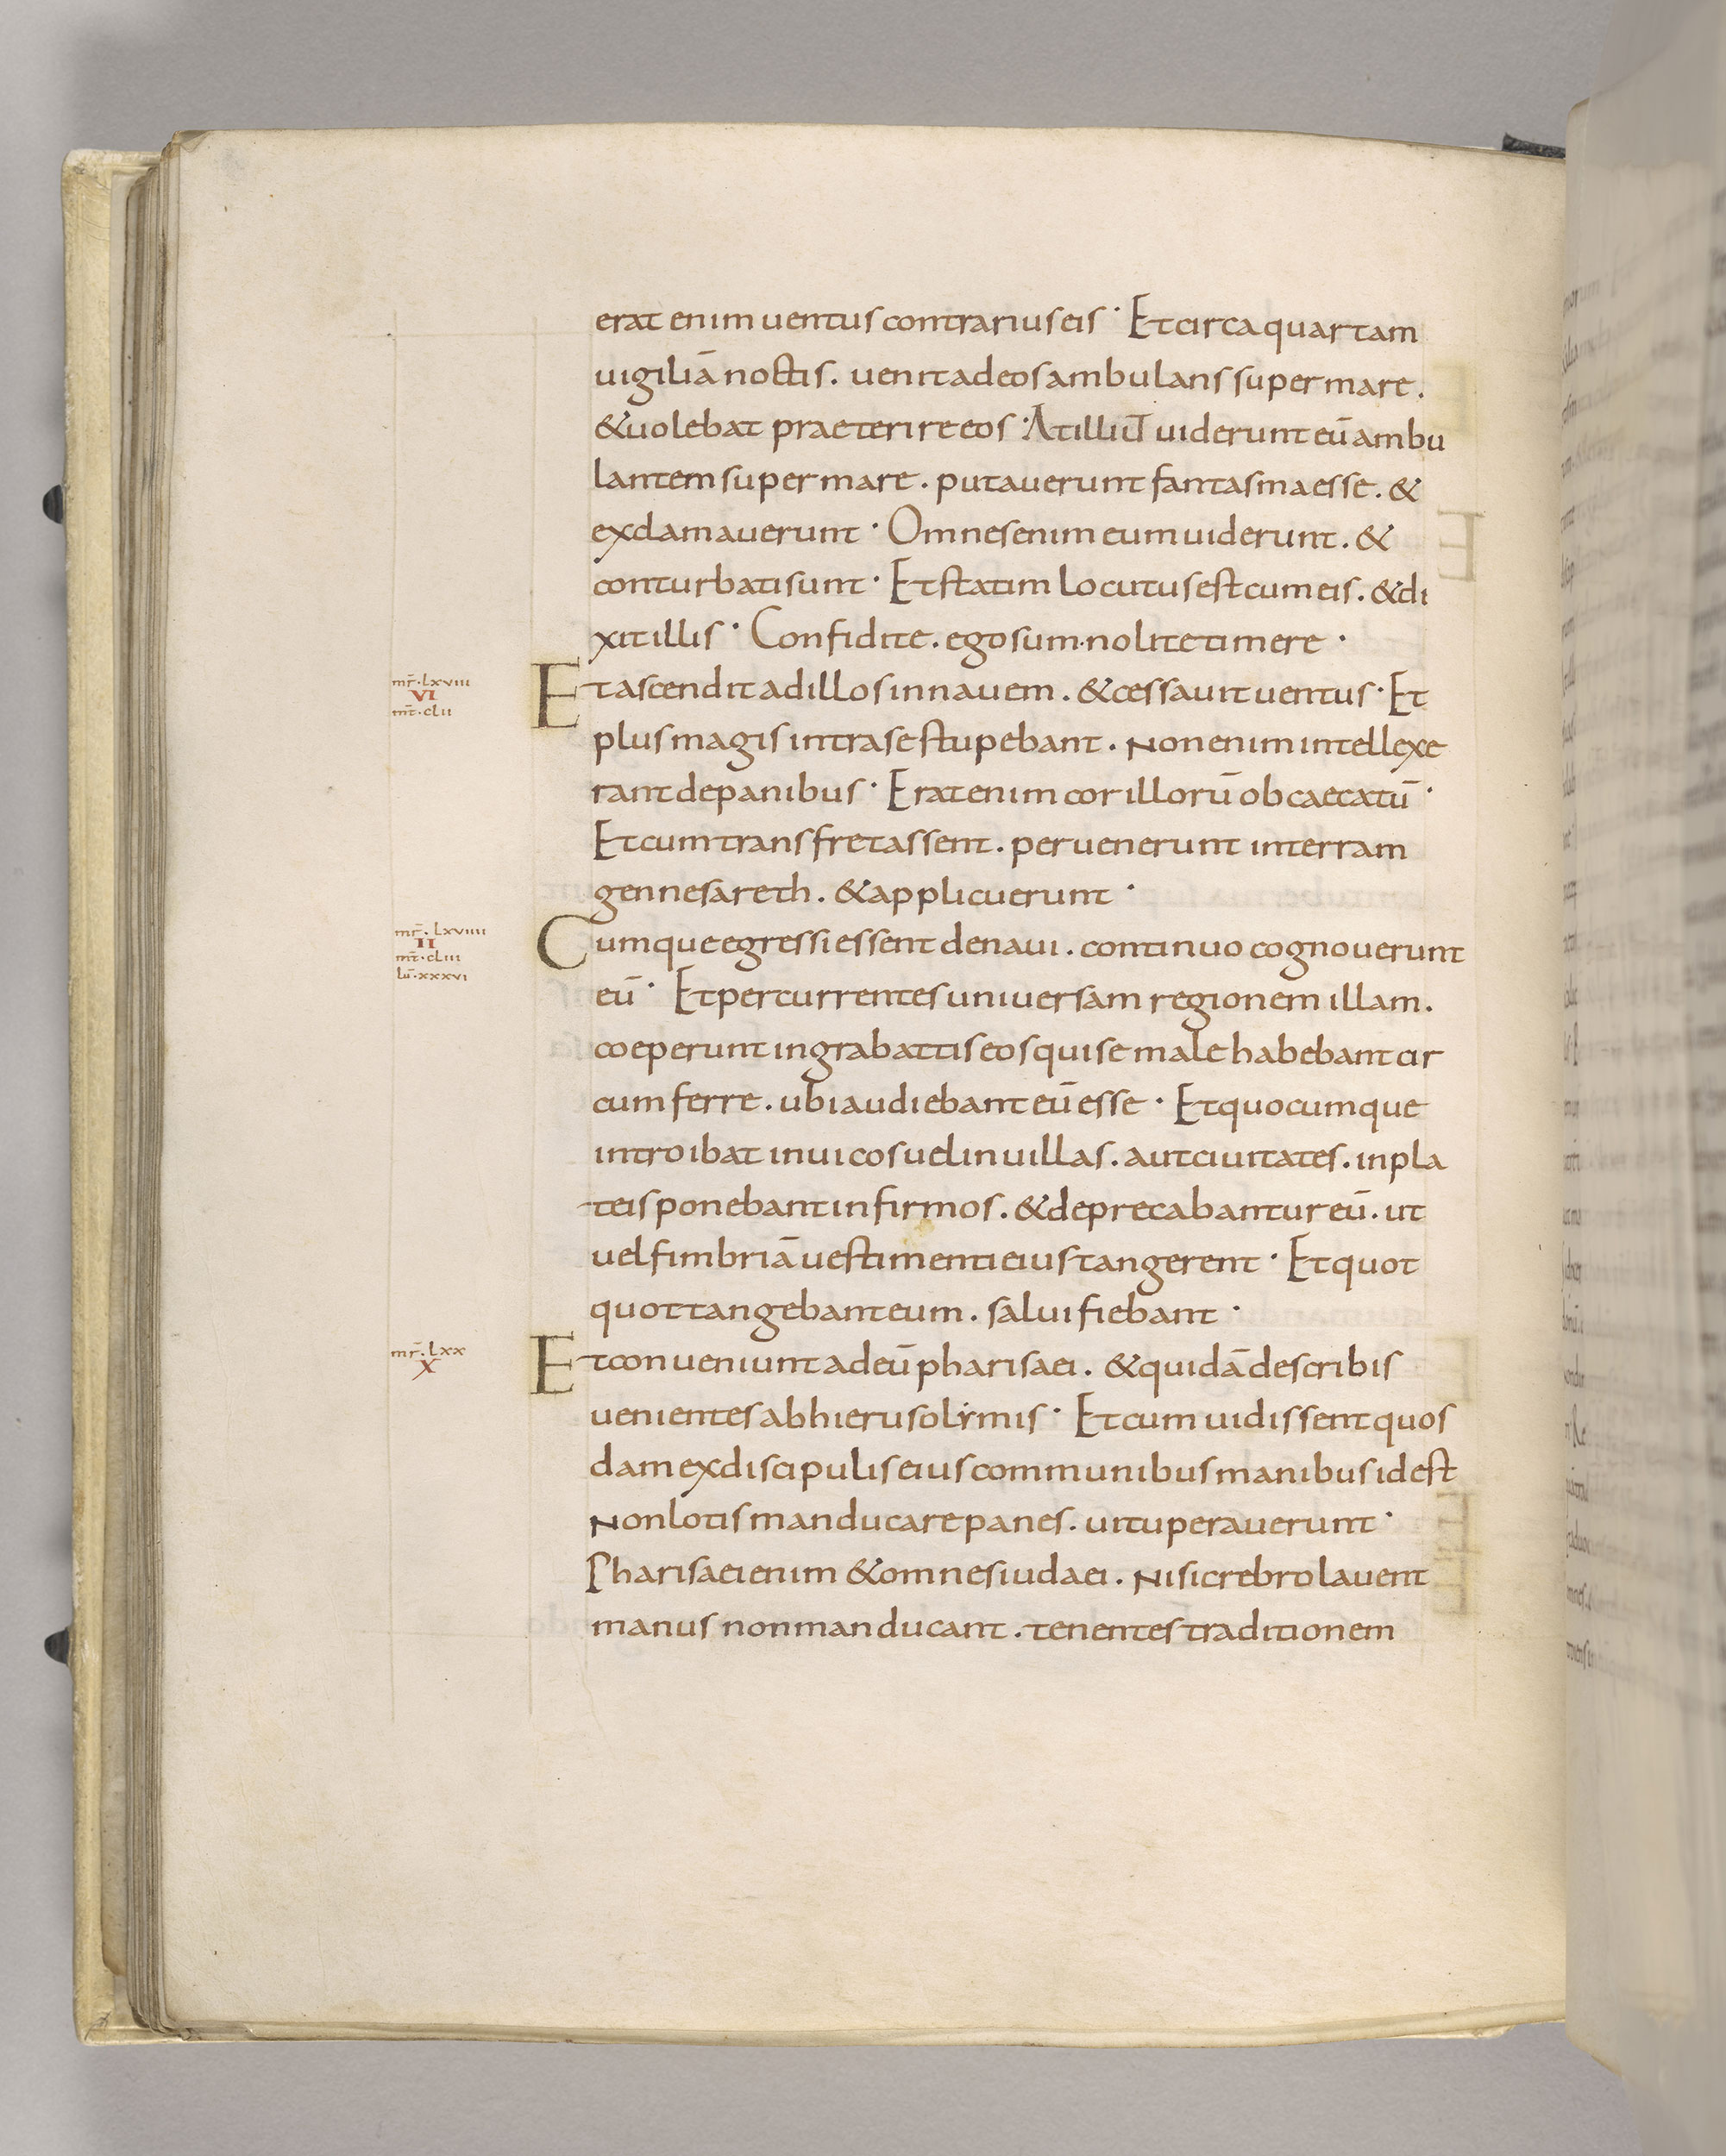 erat enim uentus contrarius eis · Et circa quartam
uigiliā noctis. uenit ad eos ambulans super mare.
& uolebat praeterire eos · At illi ut uiderunt eū ambu
lantem super mare. putauerunt fantasma esse. &
exclamauerunt · Omnes enim eum uiderunt. &
conturbati sunt · Et statim locutus est cum eis. & di
xit illis · Confidite. ego sum. nolite timere ·
mr̄. lxviii
VI
mt̄. clii
Et ascendit ad illos in nauem. & cessauit uentus · Et
plus magis intra se stupebant. Non enim intellexe
rant de panibus · Erat enim cor illorū obcaecatū ·
Et cum transfretassent. peruenerunt in terram
gennesareth. & applicuerunt ·
mr̄. lxviiii
II
mt̄. cliii
lū. xxxvi
Cumque egressi essent de naui. continuo cognouerunt
eū · Et percurrentes uniuersam regionem illam.
coeperunt in grabattis eos qui se male habebant cir
cumferre. ubi audiebant eū esse · Et quocumque
introibat in uicos uel in uillas. aut ciuitates. in pla
teis ponebant infirmos. & deprecabantur eū. ut
uel fimbriā uestimenti eius tangerent · Et quot
quot tangebant eum. salui fiebant ·
mr̄. lxx
X
Et conueniunt ad eū pharisaei. & quidā de scribis
uenientes ab hierusolẏmis · Et cum uidissent quos
dam ex discipulis eius communibus manibus id est
Non lotis manducare panes. uituperauerunt ·
Pharisaei enim & omnes iudaei. Nisi crebro lauent
manus non manducant. tenentes traditionem